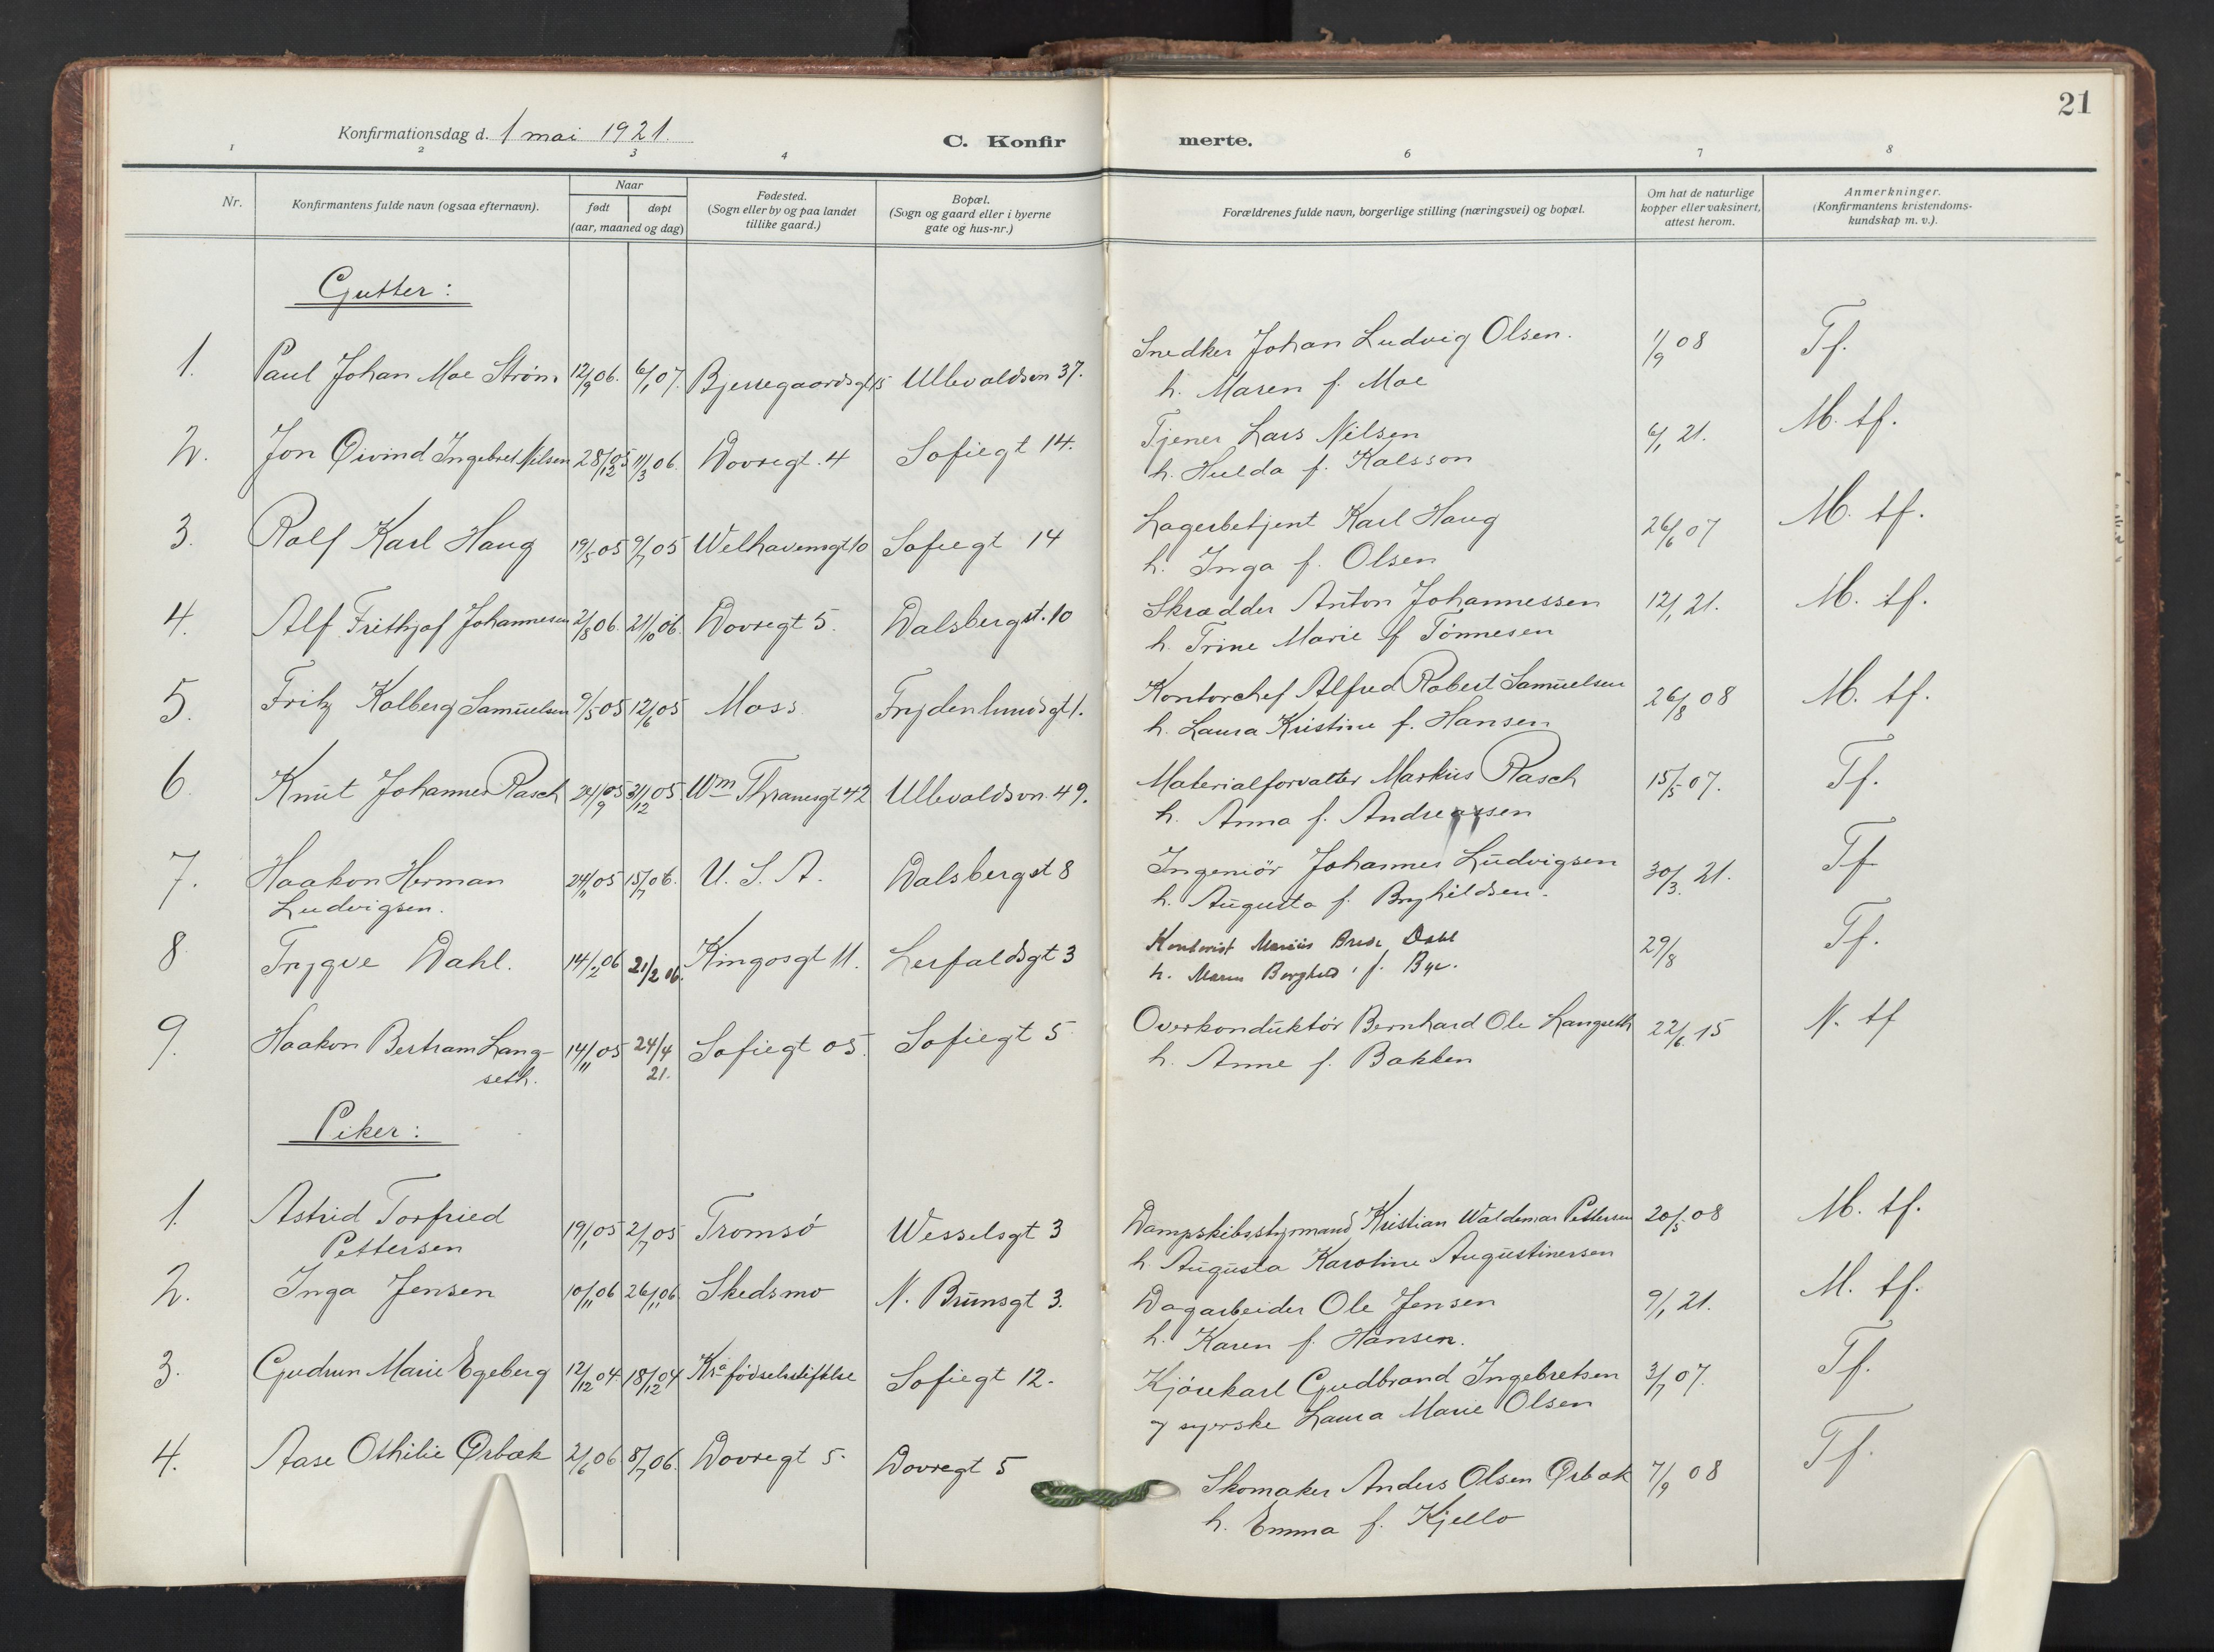 21
Konfirmationsdag d. 1 mai 1921.
C. Konfir merte.
1 2 3 4 6 7 8
Nr.
Konfirmantens fulde navn (ogsaa efternavn).
Naar
født døpt
(aar, maaned og dag)
Fødested.
(Sogn eller by og paa landet
tillike gaard.)
Bopæl.
(Sogn og gaard eller i byerne
gate og hus-nr.)
Forældrenes fulde navn, borgerlige stilling (næringsvei) og bopæl.
Om hat de naturlige
kopper eller vaksinert,
attest herom.
Anmerkninger.
(Konfirmantens kristendoms-
kundskap m. v.).
Gutter:
1. Paul Johan Moe Strøm 12/9 06. 6/1 07. Bjerregaardsgt 15 Ullevoldsvn 37. Snedker Johan Ludvig Olsen. 1/9 08 Tf.
h. Maren f. Moe
2. Jon Øivind Ingebret Nilsen 28/12 05 11/3 06. Dovregt. 4 Sofiegt 14. Tjener Lars Nilsen 6/1 21. M. tf.
h. Hulda f. Kalsson
3. Rolf Karl Haug 19/5 05 9/7 05 Welhavensgt 10 Sofiegt 14 Lagerbetjent Karl Haug 26/6 07 M. tf.
h. Inga f. Olsen
4. Alf Frithjof Johannesen 2/8 06. 21/10 06. Dovregt 5. Dalsbergst. 10 Skrædder Anton Johannessen 12/1 21. M. tf.
h. Trine Marie f Tönnesen
5. Fritz Kolberg Samuelsen 9/5 05 12/6 05 Moss Frydenlundsgt 1. Kontorchef Alfred Robert Samuelsen 26/8 08 M. tf.
h. Laura Kristine f. Hansen
6. Knut Johannes Rasch 24/9 05 31/12 05. Wm Thranesgt 42 Ullevoldsvn. 49. Materialforvalter Markus Rasch 15/5 07. Tf.
h. Anna f. Andreassen
7. Haakon Herman 24/11 05 15/7 06. U. S. A. Dalsbergst 8 Ingeniör Johannes Ludvigsen 30/3. 21. Tf
Ludvigsen. h. Augusta f. Bryhildsen.
8. Trygve Dahl. 14/2 06 21/2 06. Kingosgt 11. Lerfaldsgt 3 Kontorist Marius Dahl 29/8 Tf.
h. Maren Borghild f. Bye.
9. Haakon Bertram Lang- 14/11 05 24/4 Sofiegt 05. Sofiegt 5 Overkonduktör Bernhard Ole Langseth 22/6 15 N. tf
seth. 21. h. Anne f. Bakken
Piker:
1. Astrid Torfried 19/1 05 2/7 05 Tromsö Wesselsgt 3 Dampskibsstyrmand Kristian Waldemar Pettersen 20/5 08 M. tf.
Pettersen h. Augusta Karoline Augustinersen
2. Inga Jensen 10/11 06 26/11 06 Skedsmo N. Brunsgt 3. Dagarbeider Ole Jensen 9/1 21. M. tf.
h. Karen f. Hansen.
3. Gudrun Marie Egeberg 12/12 04 18/12 04 Kra fødselsstiftelse Sofiegt 12. Kjörekarl Gudbrand Ingebretsen 3/7 07. Tf.
og syerske Laura Marie Olsen
4. Aase Othilie Ørbæk 2/6 06 8/7 06. Dovregt 5. Dovregt 5 Skomaker Anders Olsen Ørbæk 7/9 08 Tf.
h. Emma f. Kjello